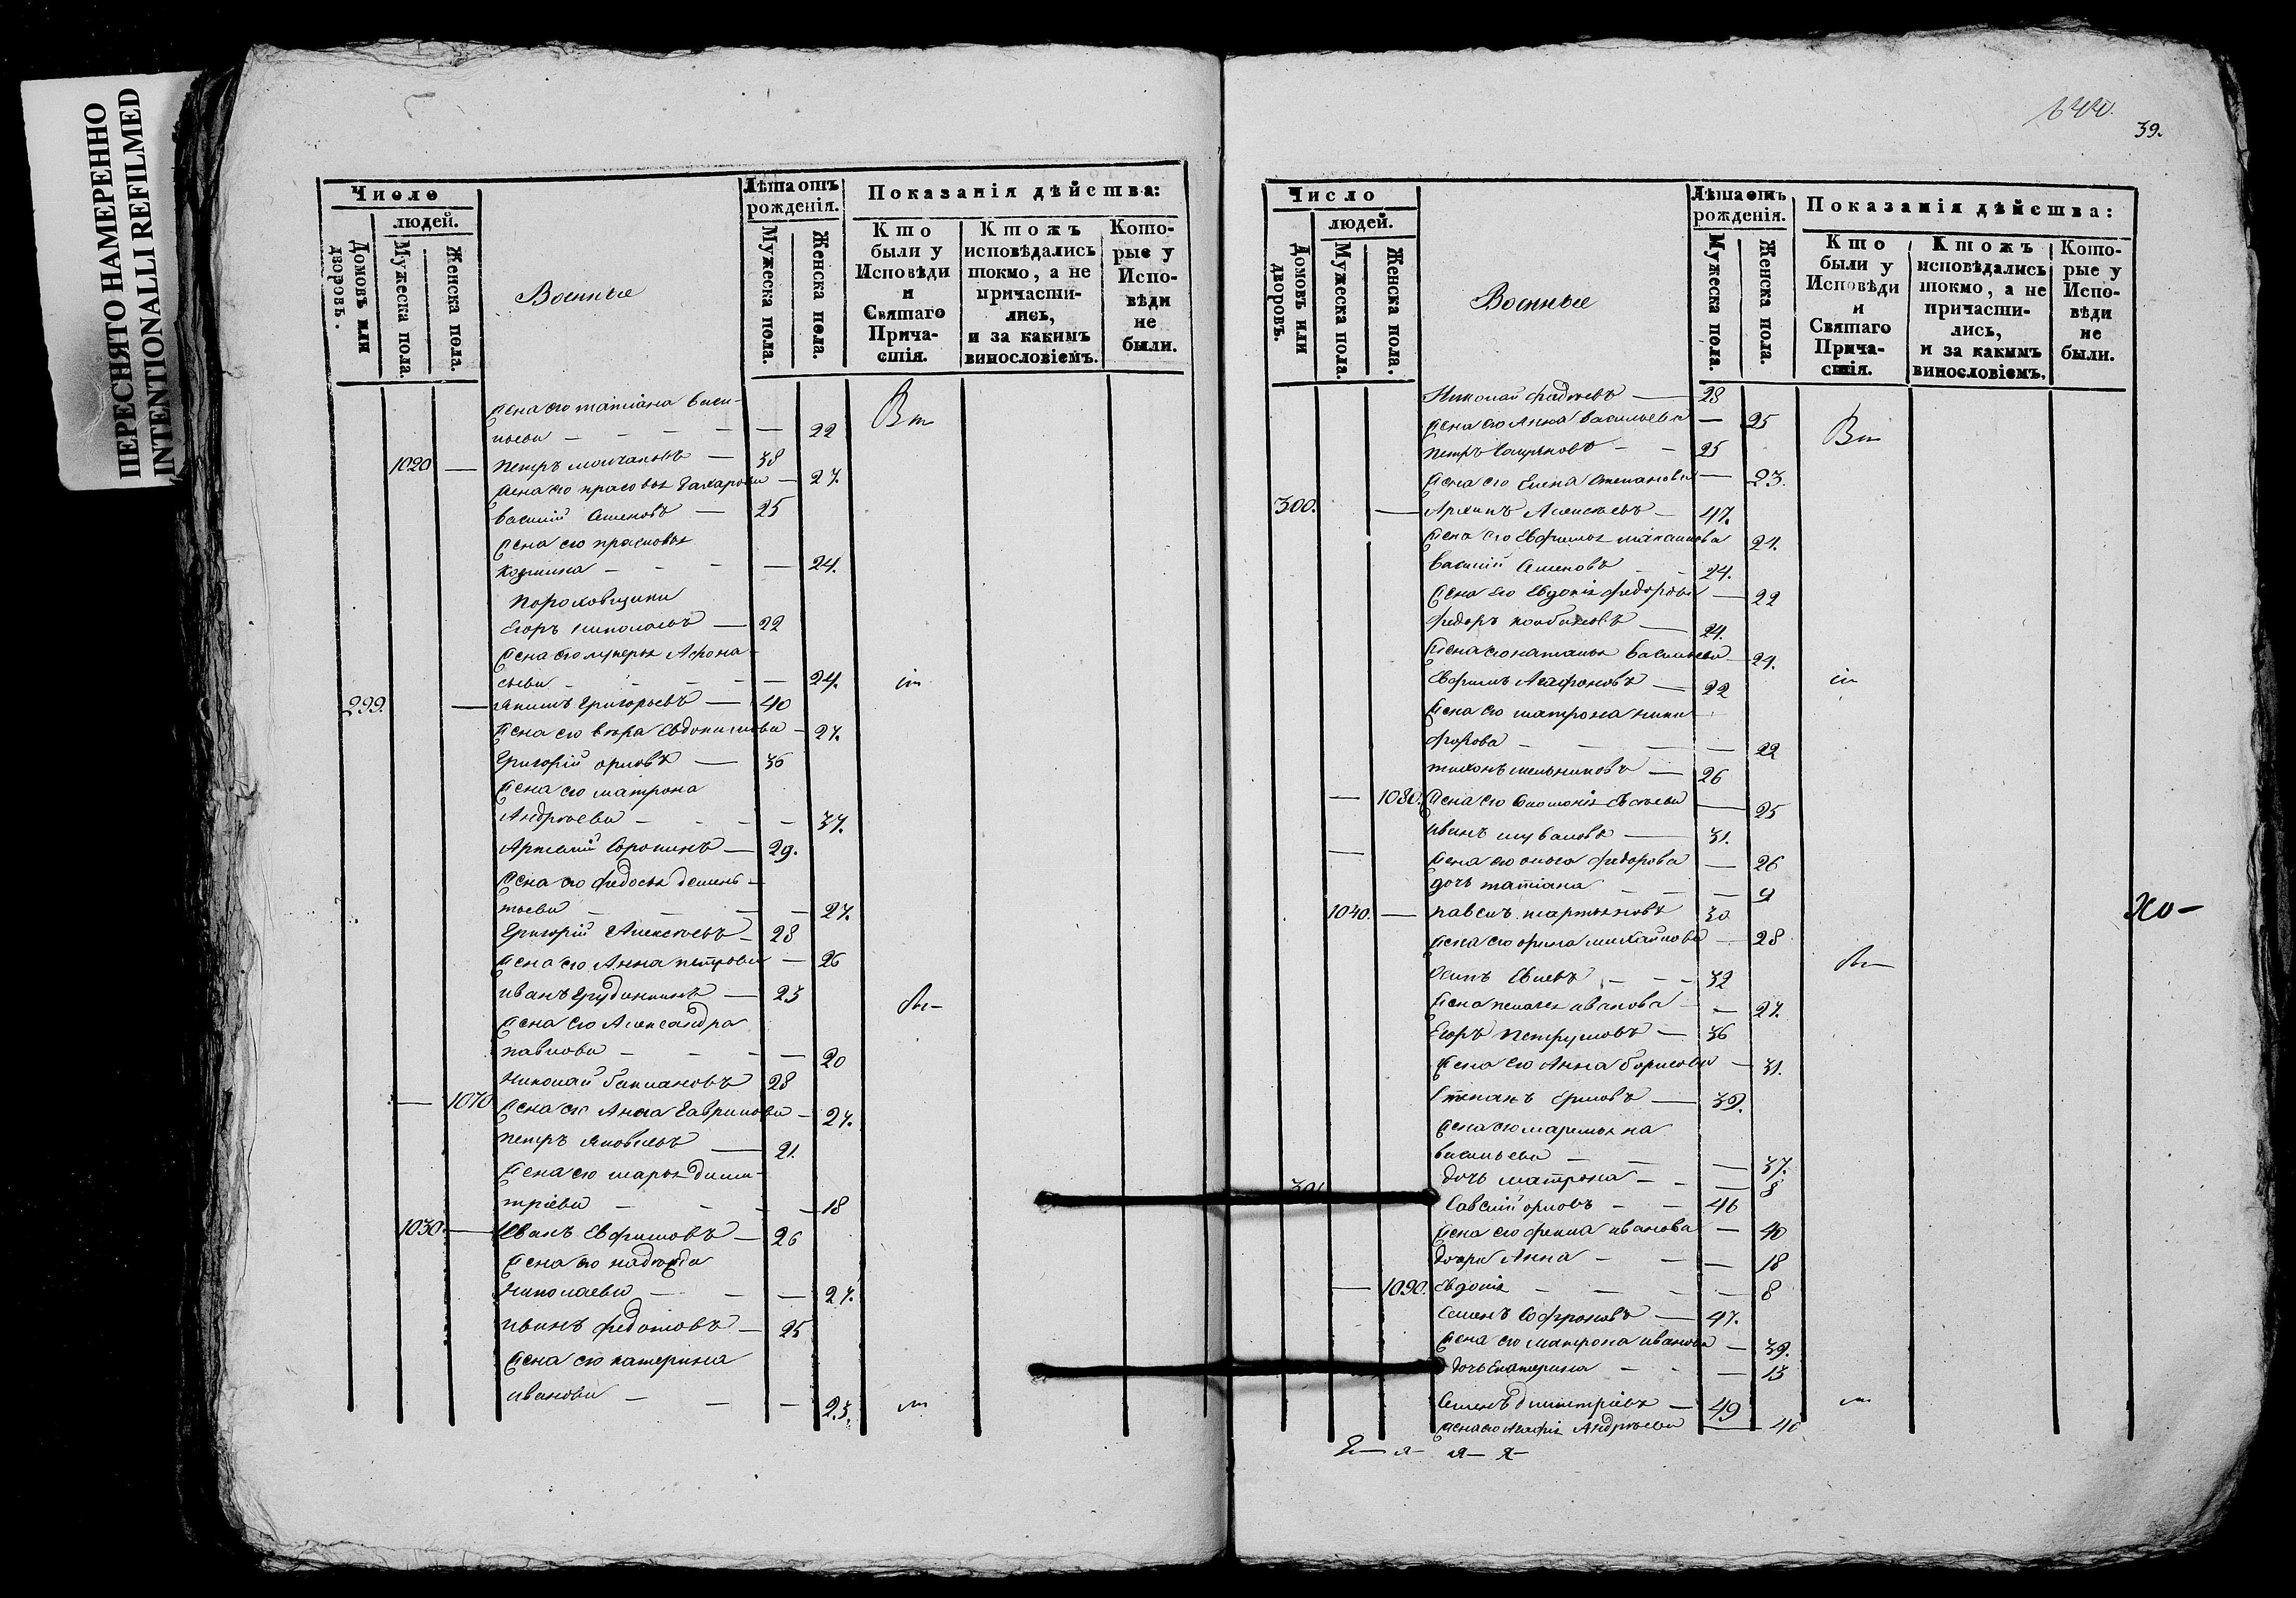 ПЕРЕСНЯТО НАМЕРЕННО
INTENTIONALLI REFILMED
Число
людей.
Домовъ или дворовъ.
Мужеска пола.
Женска пола.
Военные
Лѣта отъ рожденія.
Мужеска пола.
Женска пола.
Показанія дѣйства:
Кто были у Исповѣди и Святаго Причастія.
Ктожъ исповѣдались токмо, а не причастились, и за какимъ винословіемъ.
Которые у Исповѣди не были.
жена его татіана Васи-
льева — 22
1020 — Петръ Молчановъ — 38
жена его прасковья Захарова — 27.
Василій Семеновъ — 25
жена его прасковья
Козмина — 24.
Пороховщики
Егоръ Николаевъ — 22
жена его лукерья Афона-
сьева — 24.
299. — Григорьевъ — 40
жена его Евдокимова — 27.
Григорій орловъ — 36
жена его матрона
Андреева — 37.
Артемій Сорокинъ — 29.
жена его федосья демен-
тьева — 27.
Григорій Алексѣевъ — 28
жена его Анна петрова — 26
иванъ Грудинкинъ — 23
жена его Александра
павлова — 20
Николай — 28
— 1070 жена его Анна Гаврилова — 27.
петръ Яковлевъ — 21.
жена его марья дими-
тріева — 18
1030. — Иванъ Евфимовъ — 26
жена его надежда
Николаева — 27.
иванъ федотовъ — 25
жена его катерина
иванова — 23.
39.
Число
людей.
Домовъ или дворовъ.
Мужеска пола.
Женска пола.
Военные
Лѣта отъ рожденія.
Мужеска пола.
Женска пола.
Показанія дѣйства:
Кто были у Исповѣди и Святаго Причастія.
Ктожъ исповѣдались токмо, а не причастились, и за какимъ винословіемъ.
Которые у Исповѣди не были.
Николай фадѣевъ — 28
жена его Анна Васильева — 25
петръ — 25
жена его Елена Степанова — 23.
300. — Архипъ Алексѣевъ — 47.
жена его Евфимья 24.
Василій Семеновъ — 24.
жена его Евдокія федорова — 22
федоръ — 24.
жена его наталья Васильева — 24.
Евфимъ Агафоновъ — 22
жена его матрона ники-
форова — 22
тихонъ мельниковъ — 26
— 1080. жена его Соломонія — 25
иванъ шуваловъ — 31.
— жена его ольга федорова — 26
дочь татіана — 9
1040. — павелъ мартыновъ 30
жена его орина михайлова — 28
Осипъ — 32
жена пелагея иванова — 27.
Егоръ Петруловъ — 36
жена его Анна борисова — 31.
Степанъ — 39.
жена его маремьяна
васильева — 37.
дочь матрона — 8
301. Савелій орловъ — 46
жена его фекла иванова — 40
дочери Анна — 18
— 1090. Евдокія — 8
Семенъ Софроновъ — 47.
жена его матрона иванова — 39.
дочь Екатерина — 13
Семенъ димитріевъ — 49
жена его Агафія Андреева — 40